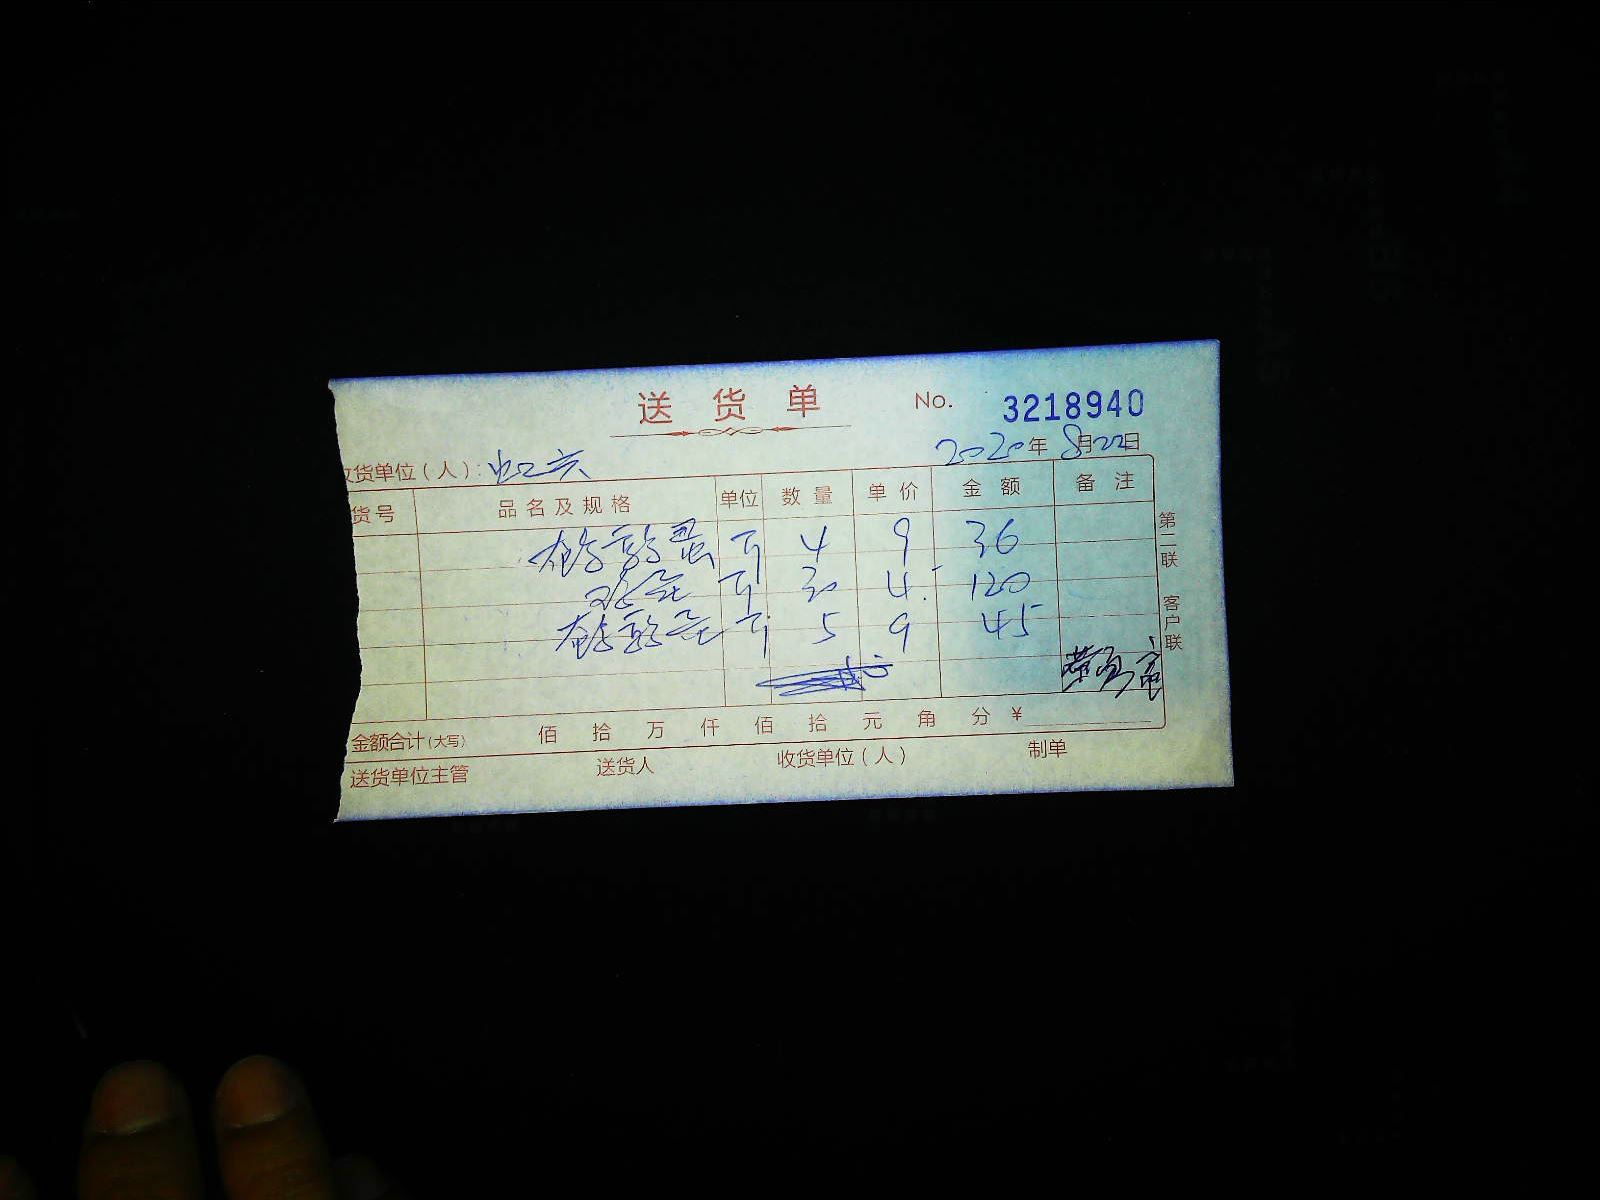 送货单 No. 3218940
2020年8月22日
收货单位(人):
货号 品名及规格 单位 数量 单价 金额 备注
斤 4 9 36
斤 30 4. 120
斤 5 9 45
金额合计(大写) 佰 拾 万 仟 佰 拾 元 角 分 ¥
送货单位主管 送货人 收货单位(人) 制单
第二联 客户联